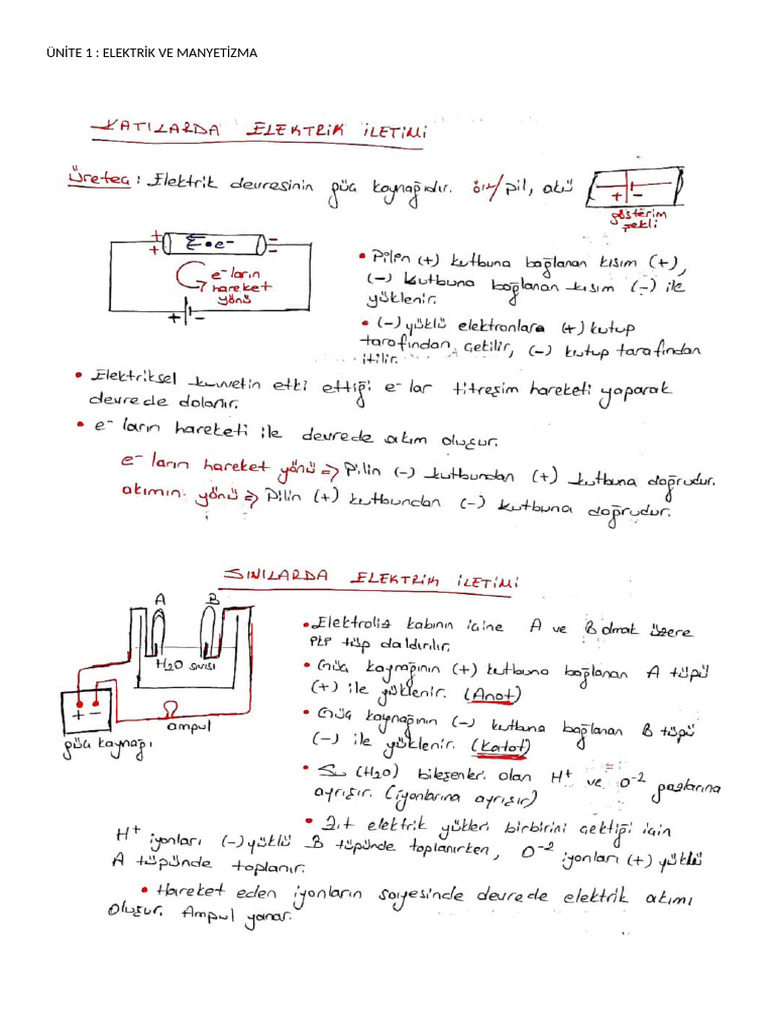 ÜNİTE 1 : ELEKTRİK VE MANYETİZMA
KATILARDA ELEKTRİK İLETİMİ
Üreteç: Elektrik devresinin güç kaynağıdır. ör/ pil, akü
+ -
gösterim şekli
+ + Σ•e- - -
e- ların hareket yönü
+ -
• Pilin (+) kutbuna bağlanan kısım (+),
(-) kutbuna bağlanan kısım (-) ile
yüklenir.
• (-) yüklü elektronlara (+) kutup
tarafından çekilir, (-) kutup tarafından
itilir.
• Elektriksel kuvvetin etki ettiği e- lar titreşim hareketi yaparak
devrede dolanır.
• e- ların hareketi ile devrede akım oluşur.
e- ların hareket yönü => Pilin (-) kutbundan (+) kutbuna doğrudur.
akımın yönü => Pilin (+) kutbundan (-) kutbuna doğrudur.
SIVILARDA ELEKTRİK İLETİMİ
A B
H2O sıvısı
+ -
ampul
güç kaynağı
• Elektroliz kabının içine A ve B olmak üzere
tüp daldırılır.
• Güç kaynağının (+) kutbuna bağlanan A tüpü
(+) ile yüklenir. (Anot)
• Güç kaynağının (-) kutbuna bağlanan B tüpü
(-) ile yüklenir. (Katot)
• Su (H2O) bileşenleri olan H+ ve O-2 gazlarına
ayrışır. (iyonlarına ayrışır)
• Zıt elektrik yükleri birbirini çektiği için
H+ iyonları (-) yüklü B tüpünde toplanırken, O-2 iyonları (+) yüklü
A tüpünde toplanır.
• Hareket eden iyonların sayesinde devrede elektrik akımı
oluşur. Ampul yanar.